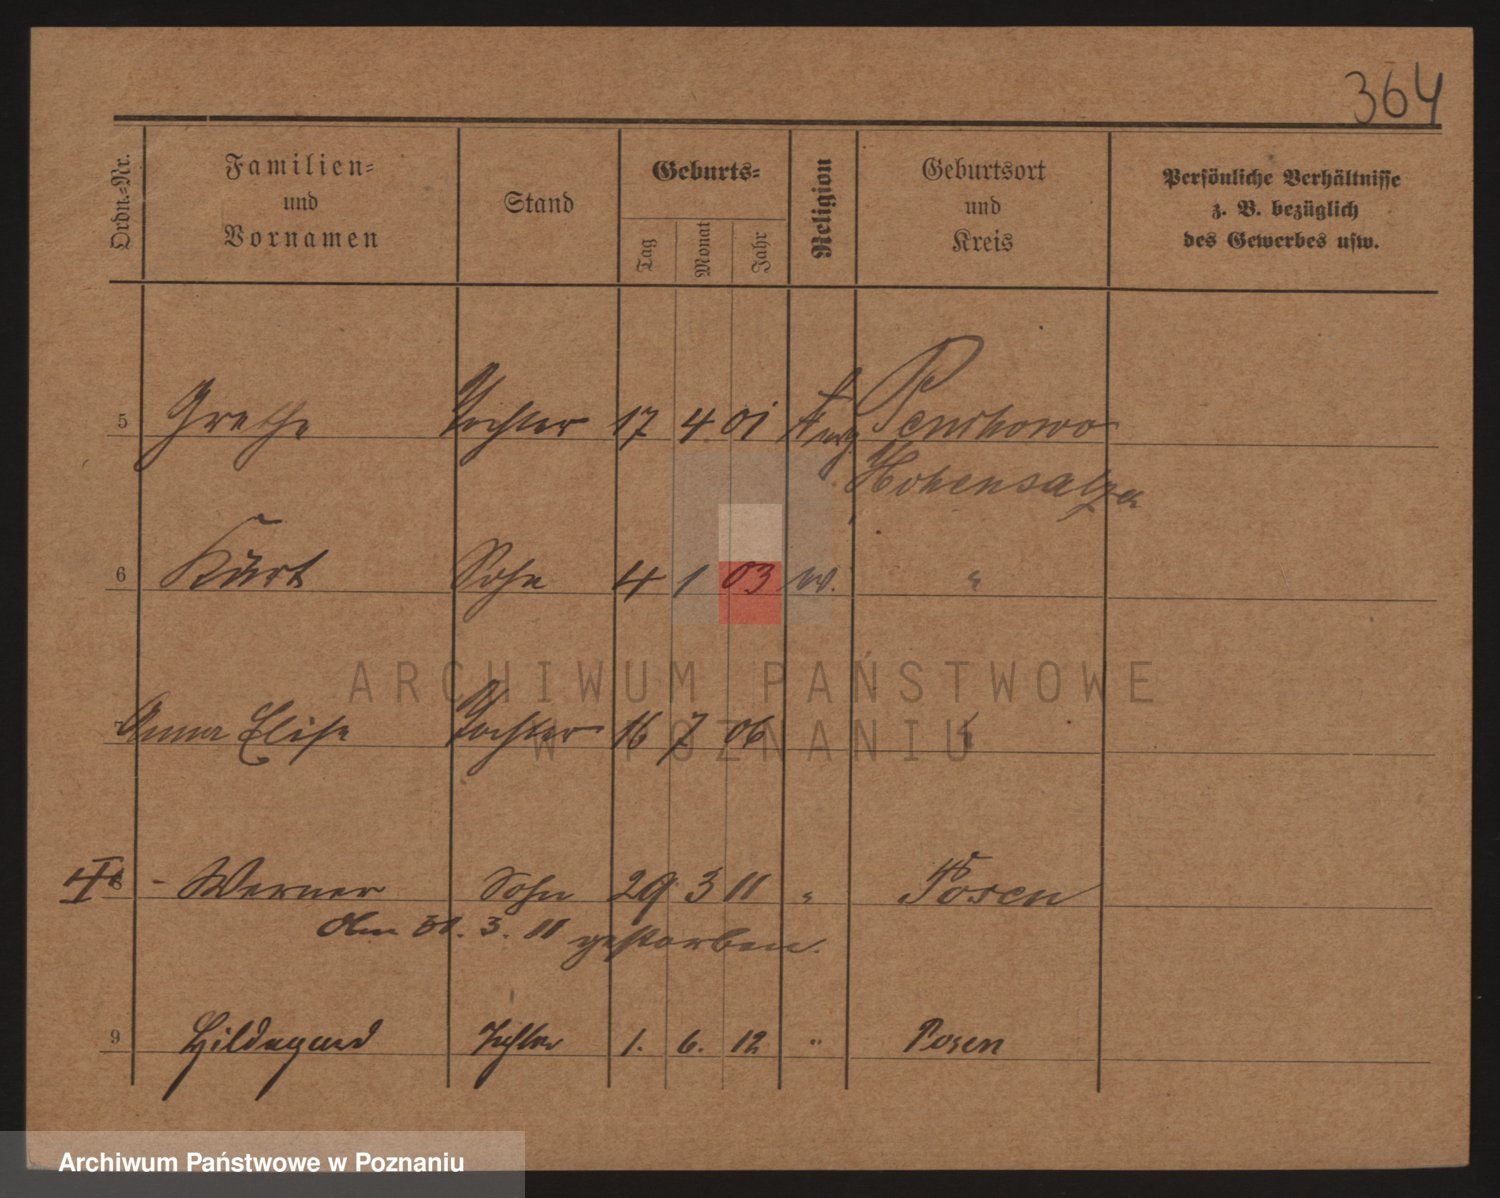 364
Ordn.-Nr.
Familien-
und
Vornamen
Stand
Geburts-
Tag
Monat
Jahr
Religion
Geburtsort
und
Kreis
Persönliche Verhältnisse
z. B. bezüglich
des Gewerbes usw.
5 Grethe Tochter 17 4 01
Hohensalza
6 Kurt Sohn 4 1 03 "
ARCHIWUM PAŃSTWOWE
W POZNANIU
7 Anna Elise Tochter 16 7 06 "
8 - Werner Sohn 29 3 11 " Posen
Am 31. 3. 11 gestorben.
9 Hildegard Tochter 1. 6. 12 " Posen
Archiwum Państwowe w Poznaniu